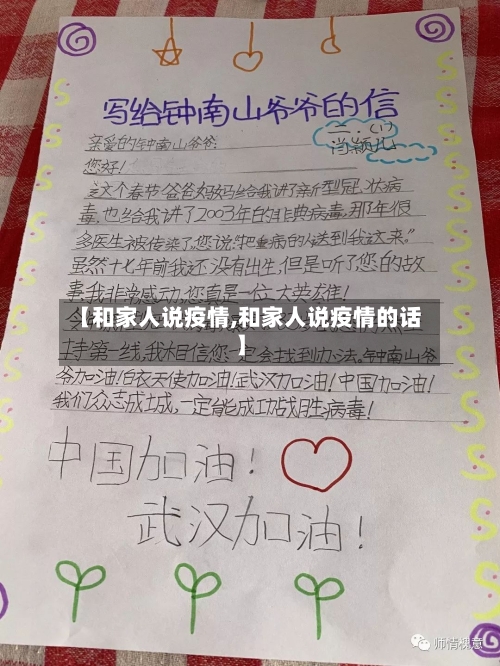 写给钟南山爷爷的信
二.(1)
肖颖儿
亲爱的钟南山爷爷:
您好!
这个春节爸爸妈妈给我讲了新型冠状病
毒,也给我讲了2003年的非典病毒,那年很
多医生被传染了。您说:“把重病的人送到我这来。”
虽然十七年前我还没有出生,但是听了您的故
事,我非常感动,您真是一位大英雄!
【和家人说疫情,和家人说疫情的话
】
第一线,我相信您一定会找到办法。钟南山爷
爷加油!白衣天使加油!武汉加油!中国加油!
我们众志成城,一定能成功战胜病毒!
中国加油!
武汉加油!
师情槐意